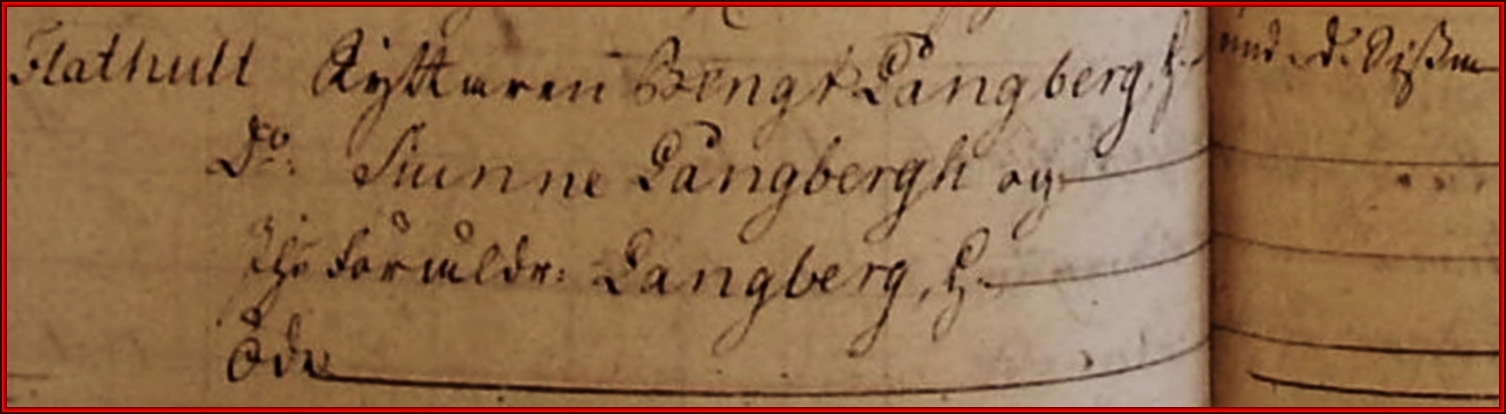 Flathult Ryttaren Bengt Långberg, h.
Do: Giunne Långbergh og
Föräldr: Langberg, h.
öde